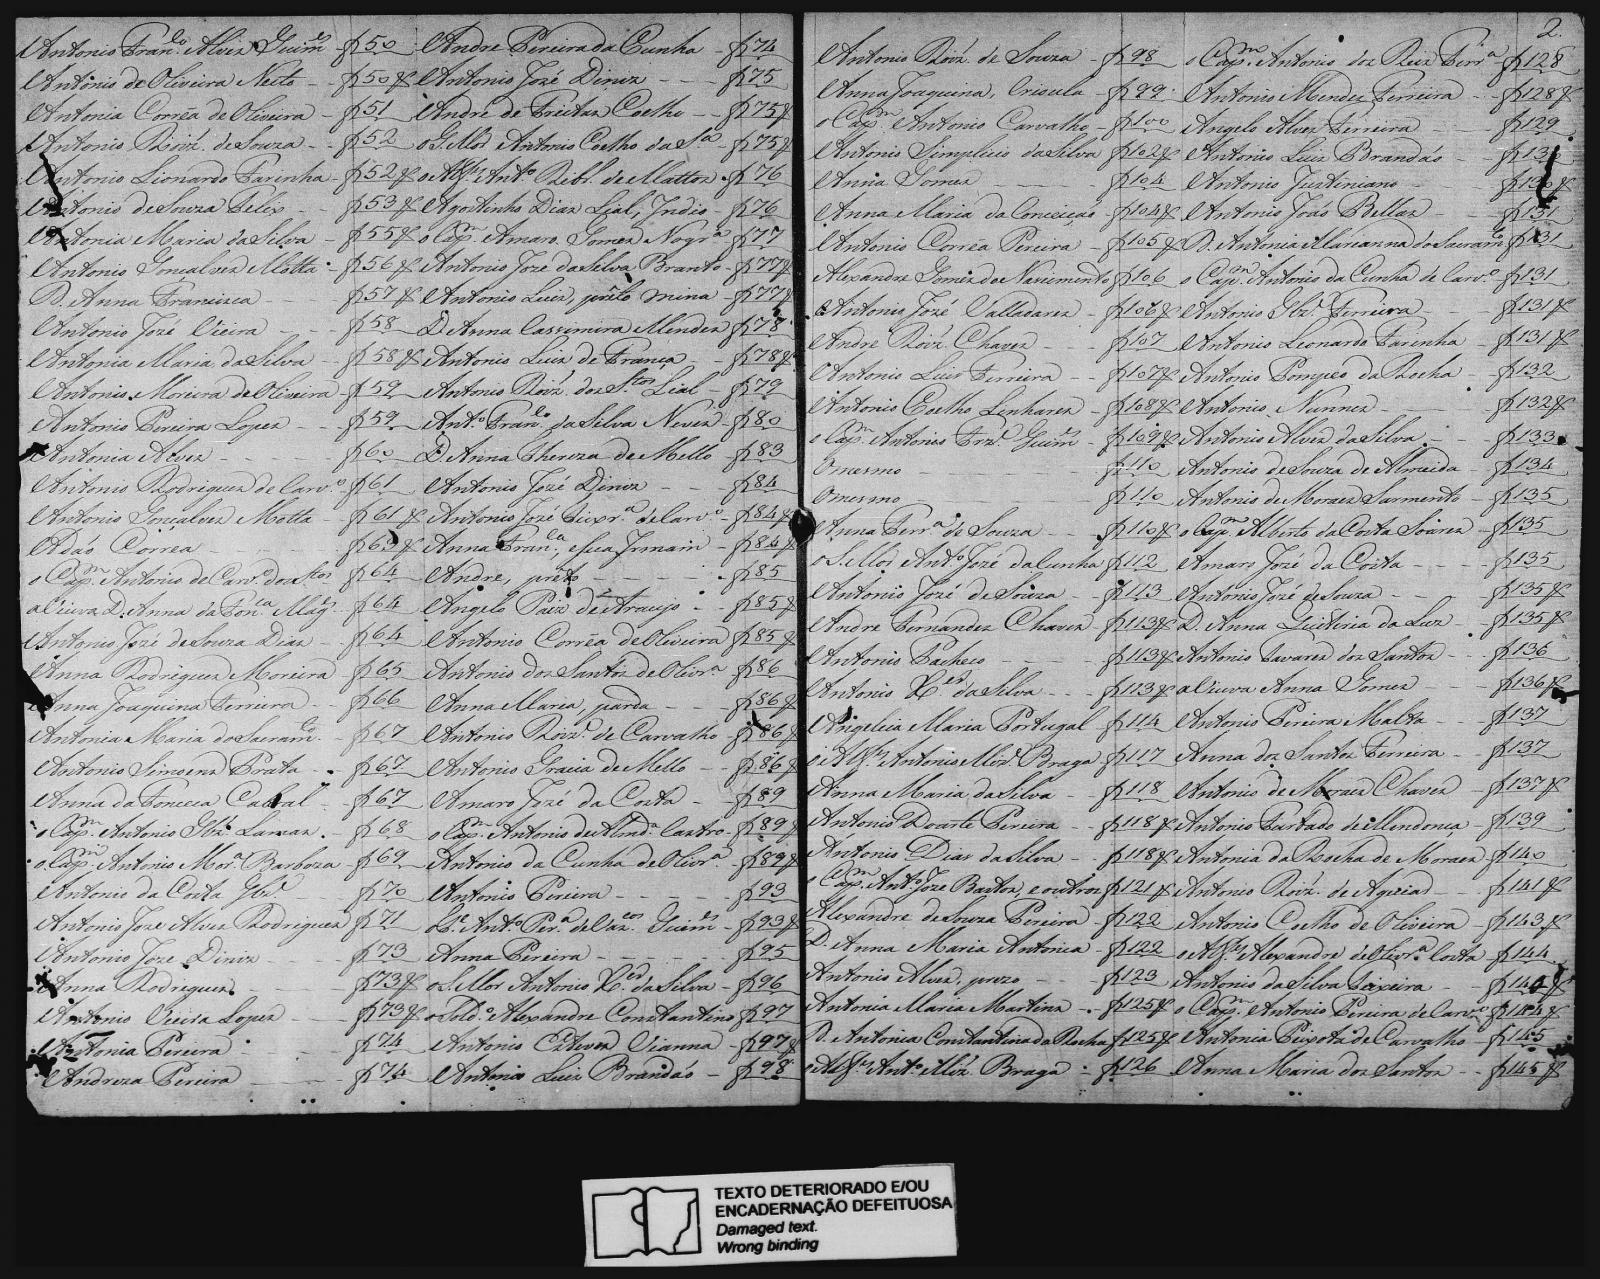 Antonio Fran.co Alvez Guim.es - f 50
Antonio de Oliveira Netto - f 50 v
Antonia Corrêa de Oliveira - f 51
Antonio Roiz. de Souza - f 52
Antonio Lionardo Farinha - f 52 v
Antonio de Souza Felix - f 53 v
Antonia Maria da Silva - f 55 v
Antonio Gonçalvez Motta - f 56 v
D. Anna Francisca - f 57 v
Antonio José Vieira - f 58
Antonia Maria da Silva - f 58 v
Antonio Moreira de Oliveira - f 59
Antonio Pereira Lopez - f 59
Antonia Alvez - f 60
Antonio Rodriguez de Carv.o - f 61
Antonio Gonçalvez Motta - f 61 v
Adão Correa - f 63 v
o Cap.m Antonio de Carv.o dos S.tos f 64
a Viuva D. Anna da Fon.ca Mag. f 64
Antonio José de Souza Dias - f 64
Anna Rodriguez Moreira f 65
Anna Joaquina Ferreira - f 66
Antonia Maria do Sacram.to - f 67
Antonio Simoens Prata - f 67
Anna da Fonceca Cabral - f 67
o Cap.m Antonio Glz. Lamas - f 68
o Cap.m Antonio Mor.a Barboza f 69
Antonio da Costa Glz. f 70
Antonio Joze Alvez Rodriguez f 71
Antonio Joze Diniz - f 73
Anna Rodriguez - f 73 v
Antonio Vieira Lopez - f 73 v
Antonia Pereira - f 74
Andreza Pereira - f 74
Andre Pereira da Cunha - f 74
Antonio José Diniz - f 75
André de Freitas Coelho - f 75 v
o S.Mor Antonio Coelho da S.a - f 75 v
o Alf.s Ant.o Rib.o de Mattos - f 76
Agostinho Dias Lial, Indio - f 76
o Cap.m Amaro Gomez Nogr.a f 77
Antonio Joze da Silva Branto - f 77 v
Antonio Luiz, preto mina - f 77 v
D. Anna Cassimira Mendez f 78
Antonio Luiz de França - f 78 v
Antonio Roiz. dos S.tos Lial - f 79
Ant.o Fran.co da Silva Nevez - f 80
D. Anna Thereza de Mello - f 83
Antonio José Diniz - f 84
Antonio José Teixr.a de Carv.o - f 84 v
Anna Fran.ca, e sua Irmam - f 84 v
Andre, preto - f 85
Angelo Paez de Araujo - f 85 v
Antonio Corrêa de Oliveira f 85 v
Antonio dos Santos de Olivr.a f 86
Anna Maria, parda - f 86 v
Antonio Roiz. de Carvalho - f 86 v
Antonio Gracia de Mello - f 86 v
Amaro José da Costa - f 89
o Cap.m Antonio de Almd.a Castro - f 89 v
Antonio da Cunha de Olivr.a f 89 v
Antonio Pereira - f 93
Ant.o Per.a de Vas.cos Guim.es - f 93 v
Anna Pereira - f 95
o S.Mor Antonio X.er da Silva - f 96
o Sold.o Alexandre Constantino f 97
Antonio Estevez Vianna - f 97 v
Antonio Luiz Brandão - f 98
2.
Antonio Roiz. de Souza - f 98
Anna Joaquina, Crioula - f 99
o Cap.m Antonio Carvalho - f 100
Antonio Simplicio da Silva f 102 v
Anna Gomez - f 104
Anna Maria da Conceição - f 104 v
Antonio Corrêa Pereira - f 105 v
Alexandre Gomes do Nascimento f 106
Antonio José Valladarez - f 106 v
André Roiz. Chavez - f 107
Antonio Luis Ferreira - f 107 v
Antonio Coelho Linharez - f 108 v
o Cap.m Antonio Frz. Guim.es - f 109 v
O mesmo - f 110
O mesmo - f 110
Anna Ferr.a de Souza - f 110 v
o S.Mor Ant.o José da Cunha f 112
Antonio José de Souza - f 113
Andre Fernandez Chavez - f 113 v
Antonio Pacheco - f 113 v
Antonio X.er da Silva - f 113 v
Angelica Maria Portugal f 114
o Alf.s Antonio Mor. Braga f 117
Anna Maria da Silva - f 118
Antonio Duarte Pereira - f 118 v
Antonio Dias da Silva - f 118 v
o Cap.m Ant.o Joze Bastos, e outros f 121 v
Alexandre de Souza Pereira - f 122
D. Anna Maria Antonia - f 122
Antonio Alvez, prezo - f 123
Antonia Maria Martins - f 125 v
D. Antonia Constantina da Rocha f 125 v
o Alf.s Ant.o Roiz. Braga - f 126
o Cap.m Antonio dos Reis Ferr.a f 128
Antonio Mendes Ferreira - f 128 v
Angelo Alvez Ferreira - f 129
Antonio Luiz Brandão - f 130
Antonio Justiniano - f 130 v
Antonio João Bellas - f 131
D. Antonia Marianna do Sacram.to f 131
o Cap.m Antonio da Cunha de Carv.o f 131
Antonio Glz. Ferreira - f 131 v
Antonio Leonardo Farinha - f 131 v
Antonio Pompeo da Rocha - f 132
Antonio Nunnes - f 132 v
Antonio Alvez da Silva - f 133
Antonio de Souza de Almeida - f 134
Antonio de Moraes Sarmento - f 135
o Cap.m Alberto da Costa Soares - f 135
Amaro José da Costa - f 135
Antonio José de Souza - f 135 v
D. Anna Quitiria da Luz - f 135 v
Antonio Tavares dos Santos - f 136
a Viuva Anna Gomez - f 136 v
Antonio Pereira Malta - f 137
Anna dos Santos Ferreira - f 137
Antonio de Moraes Chavez - f 137 v
Antonio Furtado de Mendonca - f 139
Antonia da Rocha de Moraes f 140
Antonio Roiz. de Aguiar - f 141 v
Antonio Coelho de Oliveira - f 143 v
o Alf.s Alexandre de Olivr.a Costa f 144
Antonio da Silva Teixeira - f 144 v
o Cap.m Antonio Pereira de Carv.o f 144 v
Antonia Peixota de Carvalho - f 145
Anna Maria dos Santos - f 145 v
TEXTO DETERIORADO E/OU
ENCADERNAÇÃO DEFEITUOSA
Damaged text.
Wrong binding